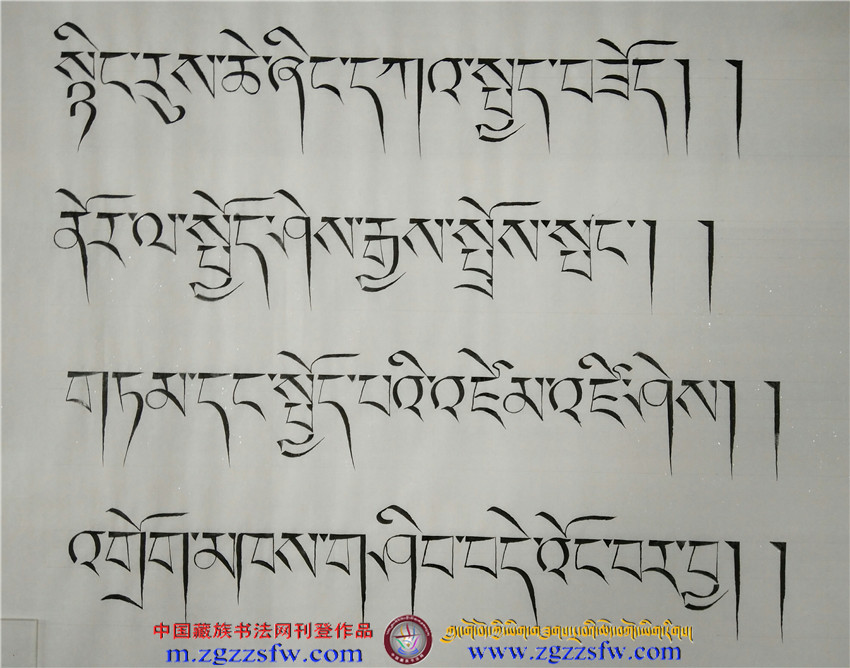 སྙིང་རུས་ཆེ་ཞིང་དཀའ་སྤྱད་བཟོད། །
ནོར་ལ་སྤྱོད་ཤེས་རྒྱས་སྤྲོས་སྤང་། །
གཏམ་དང་སྤྱོད་པའི་ ཤེས། །
འགྲོག་མཁས་གཤིབ་བདེ་འོང་བར་བྱ། །
中国藏族书法网刊登作品
m.zgzzsfw.com www.zgzzsfw.com